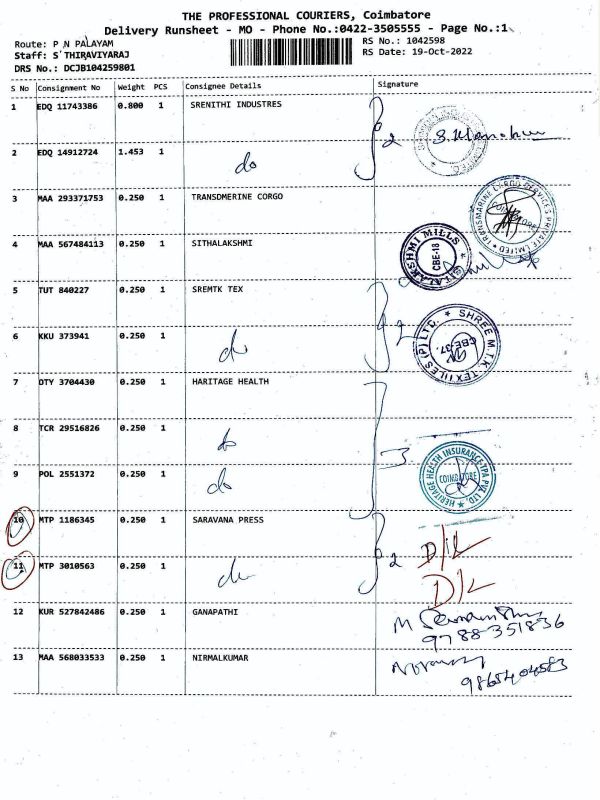 THE PROFESSIONAL COURIERS, Coimbatore
Delivery Runsheet - MO - Phone No.:0422-3505555 - Page No.:1
Route: P N PALAYAM
RS No.: 1042598
Staff: S THIRAVIYARAJ
RS Date: 19-Oct-2022
DRS No.: DCJB104259801
S No Consignment No Weight PCS Consignee Details Signature
1 EDQ 11743386 0.800 1 SRENITHI INDUSTRES
2
2 EDQ 14912724 1.453 1 do
3 MAA 293371753 0.250 1 TRANSDMERINE CORGO
TRANSMARINE CARGO SERVICES PRIVATE LIMITED
COIMBATORE
4 MAA 567484113 0.250 1 SITHALAKSHMI
MILLS
CBE-18
5 TUT 840227 0.250 1 SREMTK TEX
2
SHREE M.T.K. TEXTILES (P) LTD.
CBE-37.
6 KKU 373941 0.250 1 do
7 OTY 3704430 0.250 1 HARITAGE HEALTH
8 TCR 29516826 0.250 1 do
3
HERITAGE HEALTH INSURANCE TPA PVT. LTD.
COIMBATORE
9 POL 2551372 0.250 1 do
10 MTP 1186345 0.250 1 SARAVANA PRESS
2
D/L
11 MTP 3010563 0.250 1 do
D/L
12 KUR 527842486 0.250 1 GANAPATHI
9788-351836
13 MAA 568033533 0.250 1 NIRMALKUMAR
9865404583